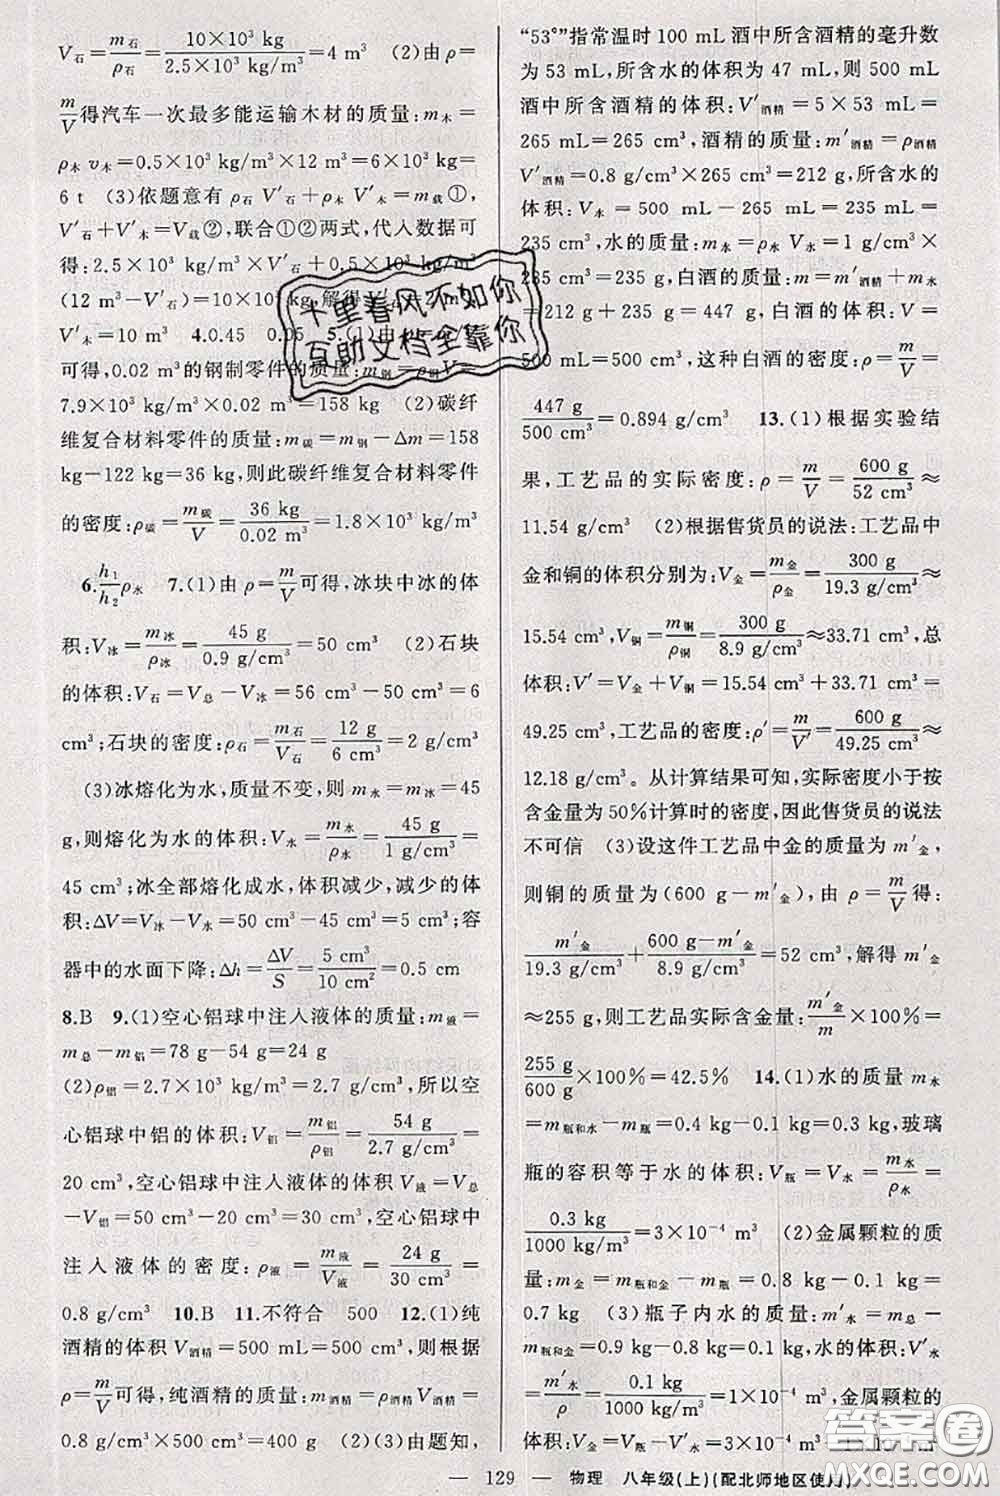 V石=m石/ρ石=10×10³ kg/2.5×10³ kg/m³=4 m³ (2)由 ρ=
m/V得汽车一次最多能运输木材的质量:m木=
ρ木 v木=0.5×10³ kg/m³×12 m³=6×10³ kg=
6 t (3)依题意有 ρ石 V′石+ρ木 V′木=m载①,
V′石+V′木=V载②,联合①②两式,代入数据可
得:2.5×10³ kg/m³×V′石+0.5×10³ kg/m³×
(12 m³-V′石)=10×10³ kg,解得:V′石=2 m³
V′木=10 m³ 4.0.45 0.05 5.(1)由
可得,0.02 m³的钢制零件的质量:m钢=ρ钢V=
7.9×10³ kg/m³×0.02 m³=158 kg (2)碳纤
维复合材料零件的质量:m碳=m钢-Δm=158
kg-122 kg=36 kg,则此碳纤维复合材料零件
的密度:ρ碳=m碳/V=36 kg/0.02 m³=1.8×10³ kg/m³
6.h₁/h₂ρ水 7.(1)由 ρ=m/V可得,冰块中冰的体
积:V冰=m冰/ρ冰=45 g/0.9 g/cm³=50 cm³ (2)石块
的体积:V石=V总-V冰=56 cm³-50 cm³=6
cm³;石块的密度:ρ石=m石/V石=12 g/6 cm³=2 g/cm³
(3)冰熔化为水,质量不变,则 m水=m冰=45
g,则熔化为水的体积:V水=m水/ρ水=45 g/1 g/cm³=
45 cm³;冰全部熔化成水,体积减少,减少的体
积:ΔV=V冰-V水=50 cm³-45 cm³=5 cm³;容
器中的水面下降:Δh=ΔV/S=5 cm³/10 cm²=0.5 cm
8.B 9.(1)空心铝球中注入液体的质量:m液=
m总-m铝=78 g-54 g=24 g
(2)ρ铝=2.7×10³ kg/m³=2.7 g/cm³,所以空
心铝球中铝的体积:V铝=m铝/ρ铝=54 g/2.7 g/cm³=
20 cm³,空心铝球中注入液体的体积 V液=V总
-V铝=50 cm³-20 cm³=30 cm³,空心铝球中
注入液体的密度:ρ液=m液/V液=24 g/30 cm³=
0.8 g/cm³ 10.B 11.不符合 500 12.(1)纯
酒精的体积 V酒精=500 mL=500 cm³,则根据
ρ=m/V可得,纯酒精的质量:m酒精=ρ酒精V酒精=
0.8 g/cm³×500 cm³=400 g (2)(3)由题知,
“53°”指常温时 100 mL 酒中所含酒精的毫升数
为 53 mL,所含水的体积为 47 mL,则 500 mL
酒中所含酒精的体积:V′酒精=5×53 mL=
265 mL=265 cm³,酒精的质量:m′酒精=ρ酒精
V′酒精=0.8 g/cm³×265 cm³=212 g,所含水的
体积:V水=500 mL-265 mL=235 mL=
235 cm³,水的质量:m水=ρ水 V水=1 g/cm³
×235 cm³=235 g,白酒的质量:m′酒精+m水
=212 g+235 g=447 g,白酒的体积:V=
500 mL=500 cm³,这种白酒的密度:ρ=m/V=
447 g/500 cm³=0.894 g/cm³ 13.(1)根据实验结
果,工艺品的实际密度:ρ=m/V=600 g/52 cm³≈
11.54 g/cm³ (2)根据售货员的说法:工艺品中
金和铜的体积分别为:V金=m金/ρ金=300 g/19.3 g/cm³≈
15.54 cm³,V铜=m铜/ρ铜=300 g/8.9 g/cm³≈33.71 cm³,总
体积:V′=V金+V铜=15.54 cm³+33.71 cm³=
49.25 cm³,工艺品的密度:ρ′=m/V′=600 g/49.25 cm³≈
12.18 g/cm³。从计算结果可知,实际密度小于按
含金量为50%计算时的密度,因此售货员的说法
不可信 (3)设这件工艺品中金的质量为 m′金,
则铜的质量为(600 g-m′金),由 ρ=m/V得:
m′金/19.3 g/cm³+600 g-m′金/8.9 g/cm³=52 cm³,解得 m′金
≈255 g,则工艺品实际含金量:m′金/m×100%=
255 g/600 g×100%=42.5% 14.(1)水的质量 m水
=m瓶和水-m瓶=0.4 kg-0.1 kg=0.3 kg,玻璃
瓶的容积等于水的体积:V瓶=V水=m水/ρ水=
0.3 kg/1000 kg/m³=3×10⁻⁴ m³ (2)金属颗粒的质
量:m金=m瓶和金-m瓶=0.8 kg-0.1 kg=
0.7 kg (3)瓶子内水的质量:m′水=m总-
m瓶和金=0.9 kg-0.8 kg=0.1 kg,水的体积:V′水
=m′水/ρ=0.1 kg/1000 kg/m³=1×10⁻⁴ m³,金属颗粒的
体积:V金=V瓶-V′水=3×10⁻⁴ m³-1×10⁻⁴
千里春风不如你
互助文档全靠你
— 129 — 物理 八年级(上)(配北师地区使用)
答案圈
MXQE.COM